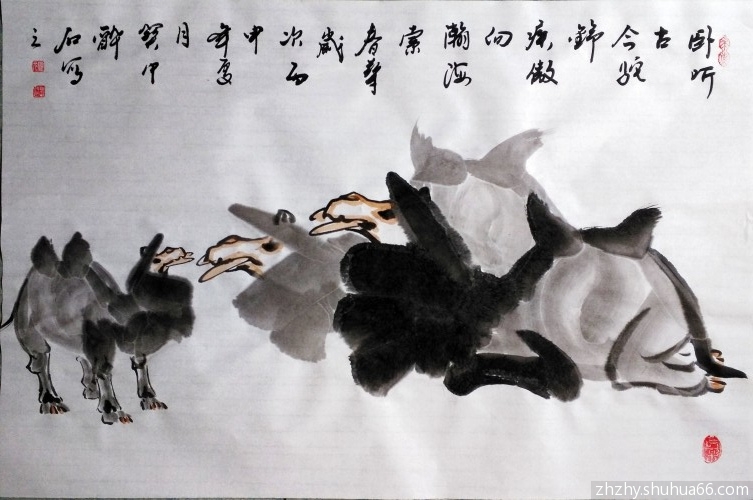 卧听
古
今驼
铃
疾傲
向
瀚海
索
春梦
岁
次丙
申
年夏
月
醉
石写
之
zhzhy.shuhua66.com